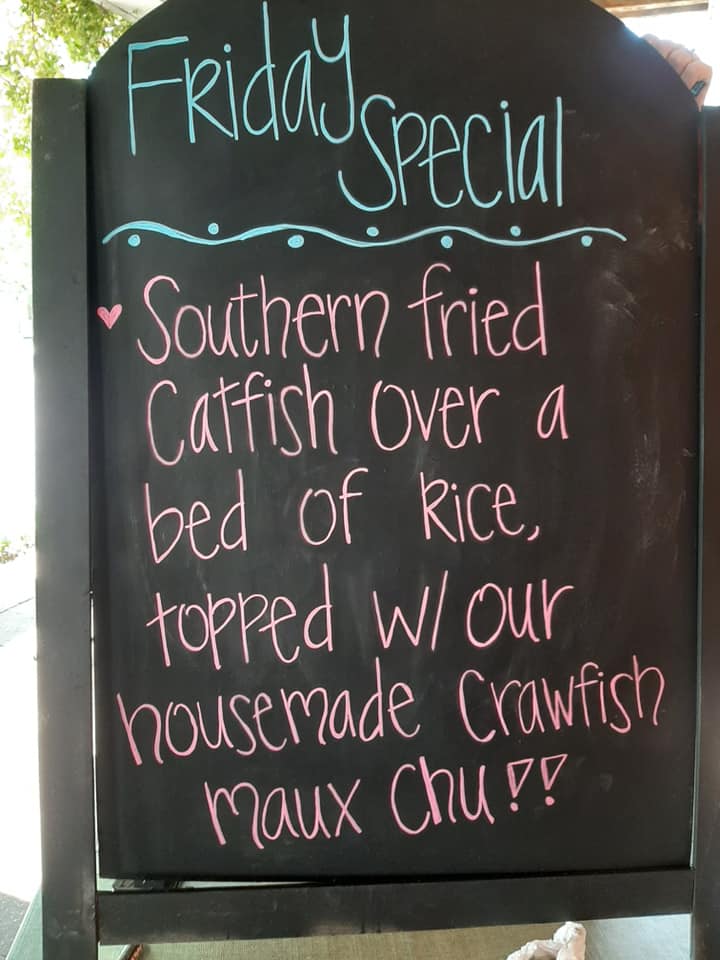 Friday
Special
Southern fried
Catfish over a
bed of Rice,
topped w/ our
housemade Crawfish
maux Chu!!